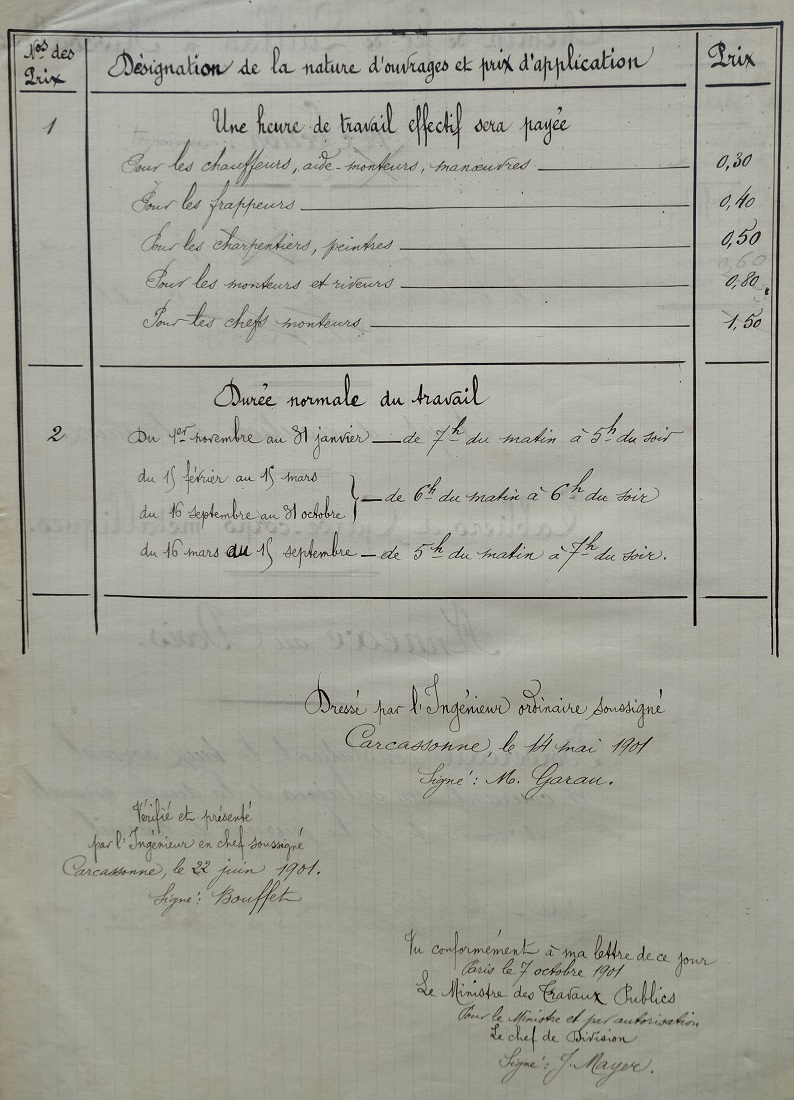 Nos des Prix
Désignation de la nature d'ouvrages et prix d'application
Prix
1
Une heure de travail effectif sera payée
Pour les chauffeurs, aide-monteurs, manœuvres 0,30
Pour les frappeurs 0,40
Pour les charpentiers, peintres 0,50
Pour les monteurs et riveurs 0,80
Pour les chefs monteurs 1,50
Durée normale du travail
2
Du 1er novembre au 31 janvier — de 7h du matin à 5h du soir
du 15 février au 15 mars
du 16 septembre au 31 octobre } — de 6h du matin à 6h du soir
du 16 mars au 15 septembre — de 5h du matin à 7h du soir.
Dressé par l'Ingénieur ordinaire soussigné
Carcassonne, le 14 mai 1901
Signé: M. Garau.
Vérifié et présenté
par l'Ingénieur en chef soussigné
Carcassonne, le 22 juin 1901.
Signé: Bouffet
Vu conformément à ma lettre de ce jour
Paris le 7 octobre 1901
Le Ministre des Travaux Publics
Pour le Ministre et par autorisation
Le chef de Division
Signé: J. Mayer.